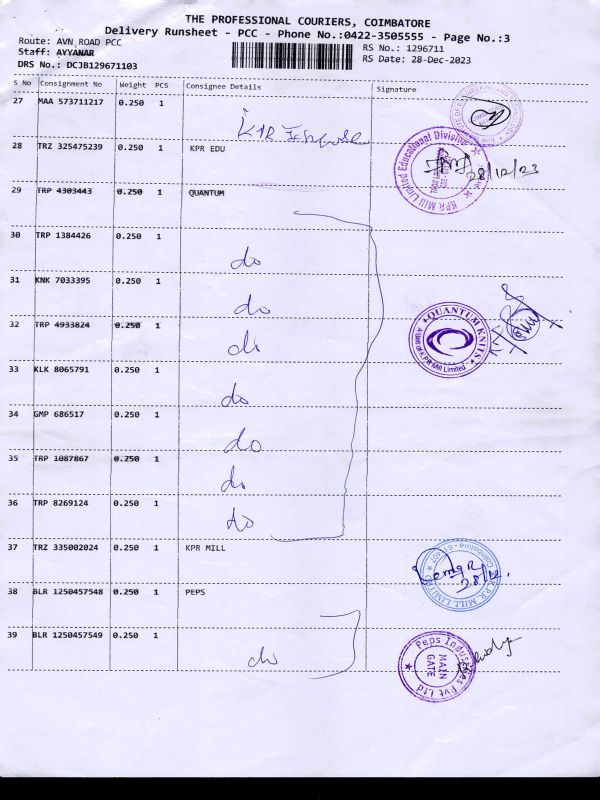 THE PROFESSIONAL COURIERS, COIMBATORE
Delivery Runsheet - PCC - Phone No.:0422-3505555 - Page No.:3
Route: AVN ROAD PCC
RS No.: 1296711
Staff: AYYANAR
RS Date: 28-Dec-2023
DRS No.: DCJB129671103
S No Consignment No Weight PCS Consignee Details Signature
27 MAA 573711217 0.250 1
KPR
28 TRZ 325475239 0.250 1 KPR EDU
KPR Mill Limited Educational Division
28/12/23
29 TRP 4303443 0.250 1 QUANTUM
30 TRP 1384426 0.250 1
do
31 KNK 7033395 0.250 1
do
32 TRP 4933824 0.250 1
do
QUANTUM KNITS
33 KLK 8065791 0.250 1
do
34 GMP 686517 0.250 1
do
35 TRP 1087867 0.250 1
do
36 TRP 8269124 0.250 1
do
37 TRZ 335002024 0.250 1 KPR MILL
38 BLR 1250457548 0.250 1 PEPS
39 BLR 1250457549 0.250 1
do
Peps Industries Pvt Ltd
MAIN
GATE